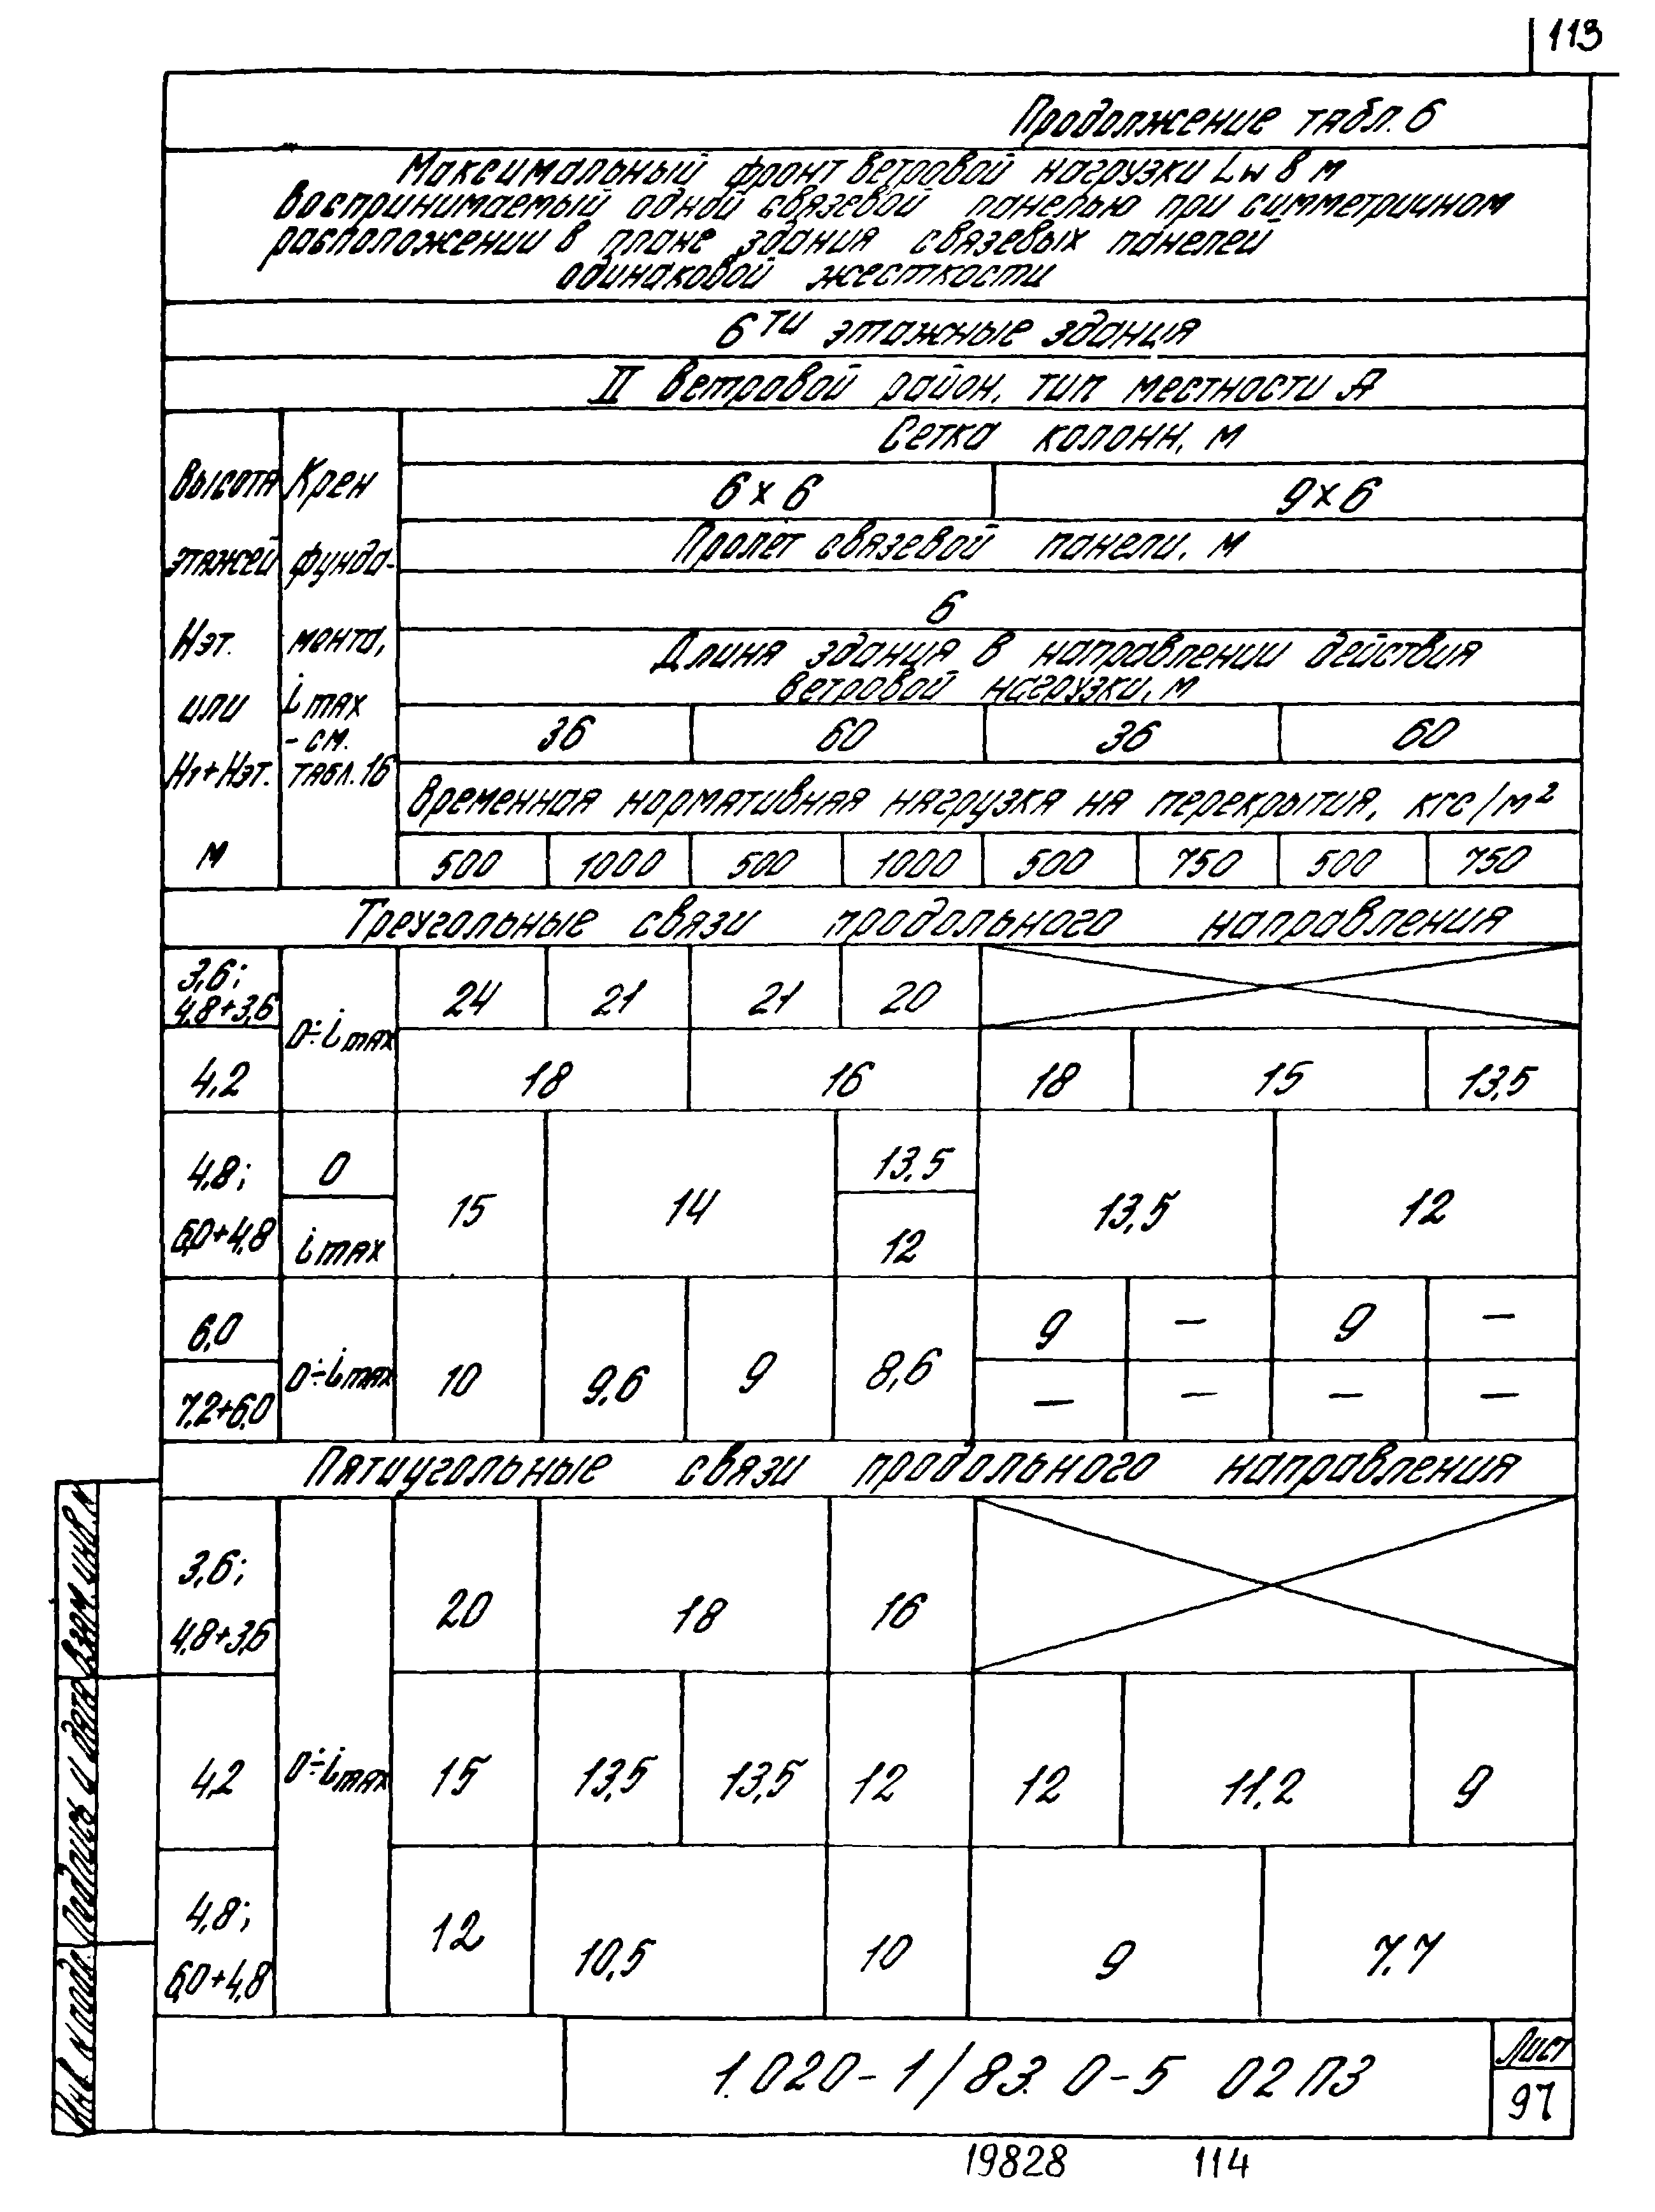 113
Продолжение табл. 6
Максимальный фронт ветровой нагрузки Lw в м
воспринимаемый одной связевой панелью при симметричном
расположении в плане здания связевых панелей
одинаковой жесткости
6ти этажные здания
II ветровой район, тип местности А
Высота этажей Нэт. или Н1+Нэт. м
Крен фунда-мента, imax - см. табл. 16
Сетка колонн, м
6×6 9×6
Пролет связевой панели, м
6
Длина здания в направлении действия
ветровой нагрузки, м
36 60 36 60
Временная нормативная нагрузка на перекрытия, кгс/м²
500 1000 500 1000 500 750 500 750
Треугольные связи продольного направления
3,6; 4,8+3,6 0÷imax 24 21 21 20
4,2 18 16 18 15 13,5
4,8; 6,0+4,8 0 15 14 13,5 13,5 12
imax 12
6,0 0÷imax 10 9,6 9 8,6 9 — 9 —
7,2+6,0 — — — —
Пятиугольные связи продольного направления
3,6; 4,8+3,6 0÷imax 20 18 16
4,2 15 13,5 13,5 12 12 11,2 9
4,8; 6,0+4,8 12 10,5 10 9 7,7
Взам. инв. №
Подпись и дата
Инв. № подл.
1.020-1/83. 0-5 02 ПЗ
Лист
97
19828 114